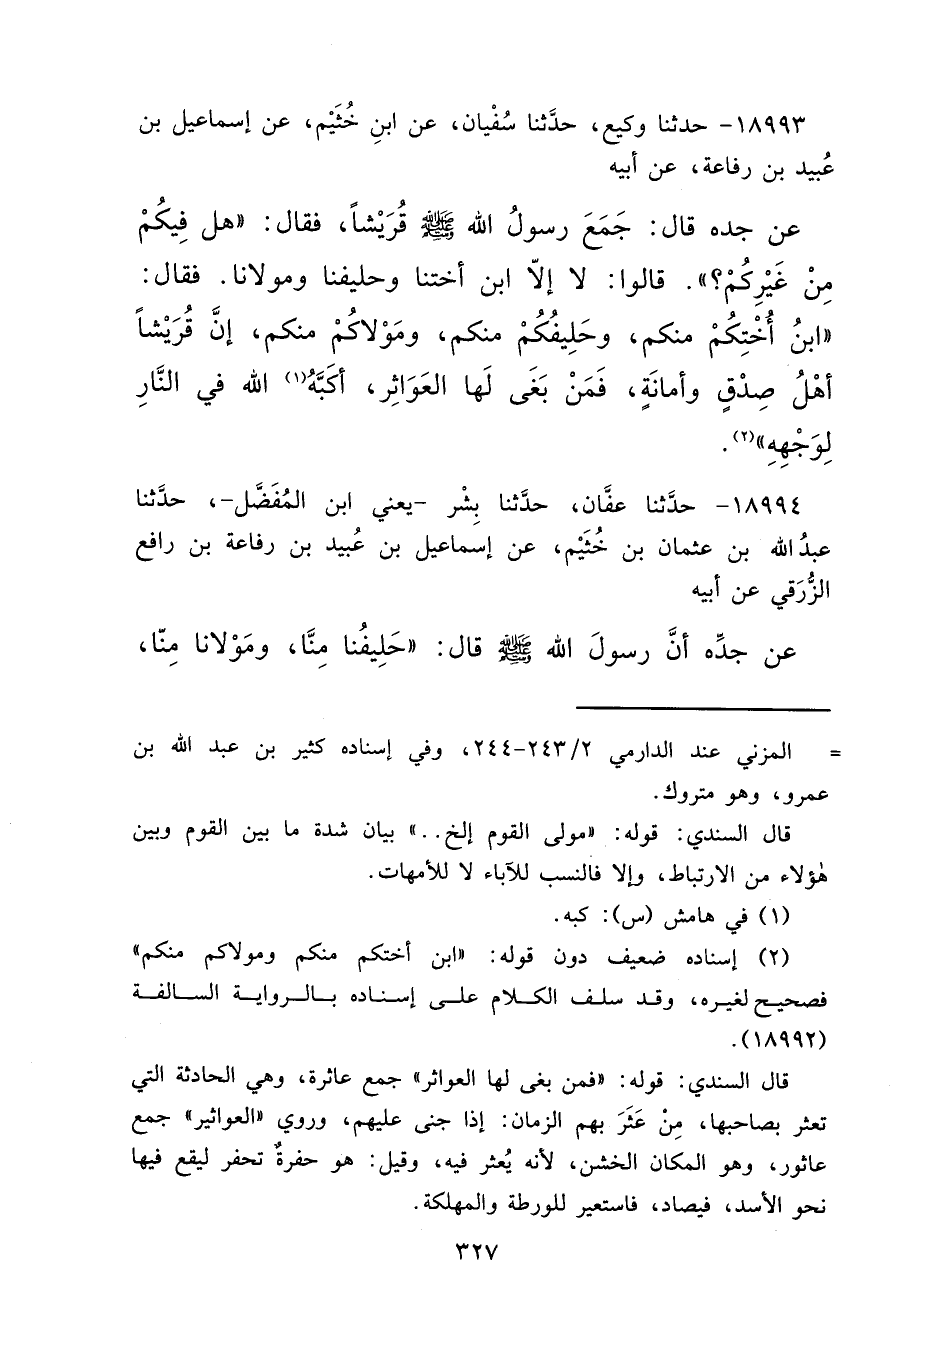 ١٨٩٩٣- حدثنا وكيع، حدَّثنا سُفْيان، عن ابنِ خُثَيْم، عن إسماعيل بن
عُبيد بن رفاعة، عن أبيه
عن جده قال: جَمَعَ رسولُ الله ﷺ قُرَيْشاً، فقال: «هل فِيكُمْ
مِنْ غَيْرِكُمْ؟». قالوا: لا إلاّ ابن أختنا وحليفنا ومولانا. فقال:
«ابنُ أُخْتِكُمْ منكم، وحَلِيفُكُمْ منكم، ومَوْلاكُمْ منكم، إنَّ قُرَيْشاً
أهْلُ صِدْقٍ وأمانَةٍ، فَمَنْ بَغَى لَها العَوَاثِر، أكَبَّهُ(١) الله في النَّارِ
لِوَجْهِهِ»(٢).
١٨٩٩٤- حدَّثنا عفَّان، حدَّثنا بِشْر -يعني ابن المُفَضَّل-، حدَّثنا
عبدُ الله بن عثمان بن خُثَيْم، عن إسماعيل بن عُبيد بن رفاعة بن رافع
الزُّرَقي عن أبيه
عن جدِّه أنَّ رسولَ الله ﷺ قال: «حَلِيفُنا مِنَّا، ومَوْلانا مِنّا،
= المزني عند الدارمي ٢/ ٢٤٣-٢٤٤، وفي إسناده كثير بن عبد الله بن
عمرو، وهو متروك.
قال السندي: قوله: «مولى القوم إلخ..» بيان شدة ما بين القوم وبين
هٰؤلاء من الارتباط، وإلا فالنسب للآباء لا للأمهات.
(١) في هامش (س): كبه.
(٢) إسناده ضعيف دون قوله: «ابن أختكم منكم ومولاكم منكم»
فصحيح لغيره، وقد سلف الكلام على إسناده بالرواية السالفة
(١٨٩٩٢).
قال السندي: قوله: «فمن بغى لها العواثر» جمع عاثرة، وهي الحادثة التي
تعثر بصاحبها، مِنْ عَثَرَ بهم الزمان: إذا جنى عليهم، وروي «العواثير» جمع
عاثور، وهو المكان الخشن، لأنه يُعثر فيه، وقيل: هو حفرةٌ تحفر ليقع فيها
نحو الأسد، فيصاد، فاستعير للورطة والمهلكة.
٣٢٧